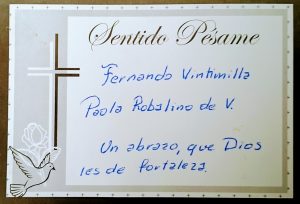 Sentido Pésame
Fernando Vintimilla
Paola Robalino de V.
Un abrazo, que Dios
les de fortaleza.